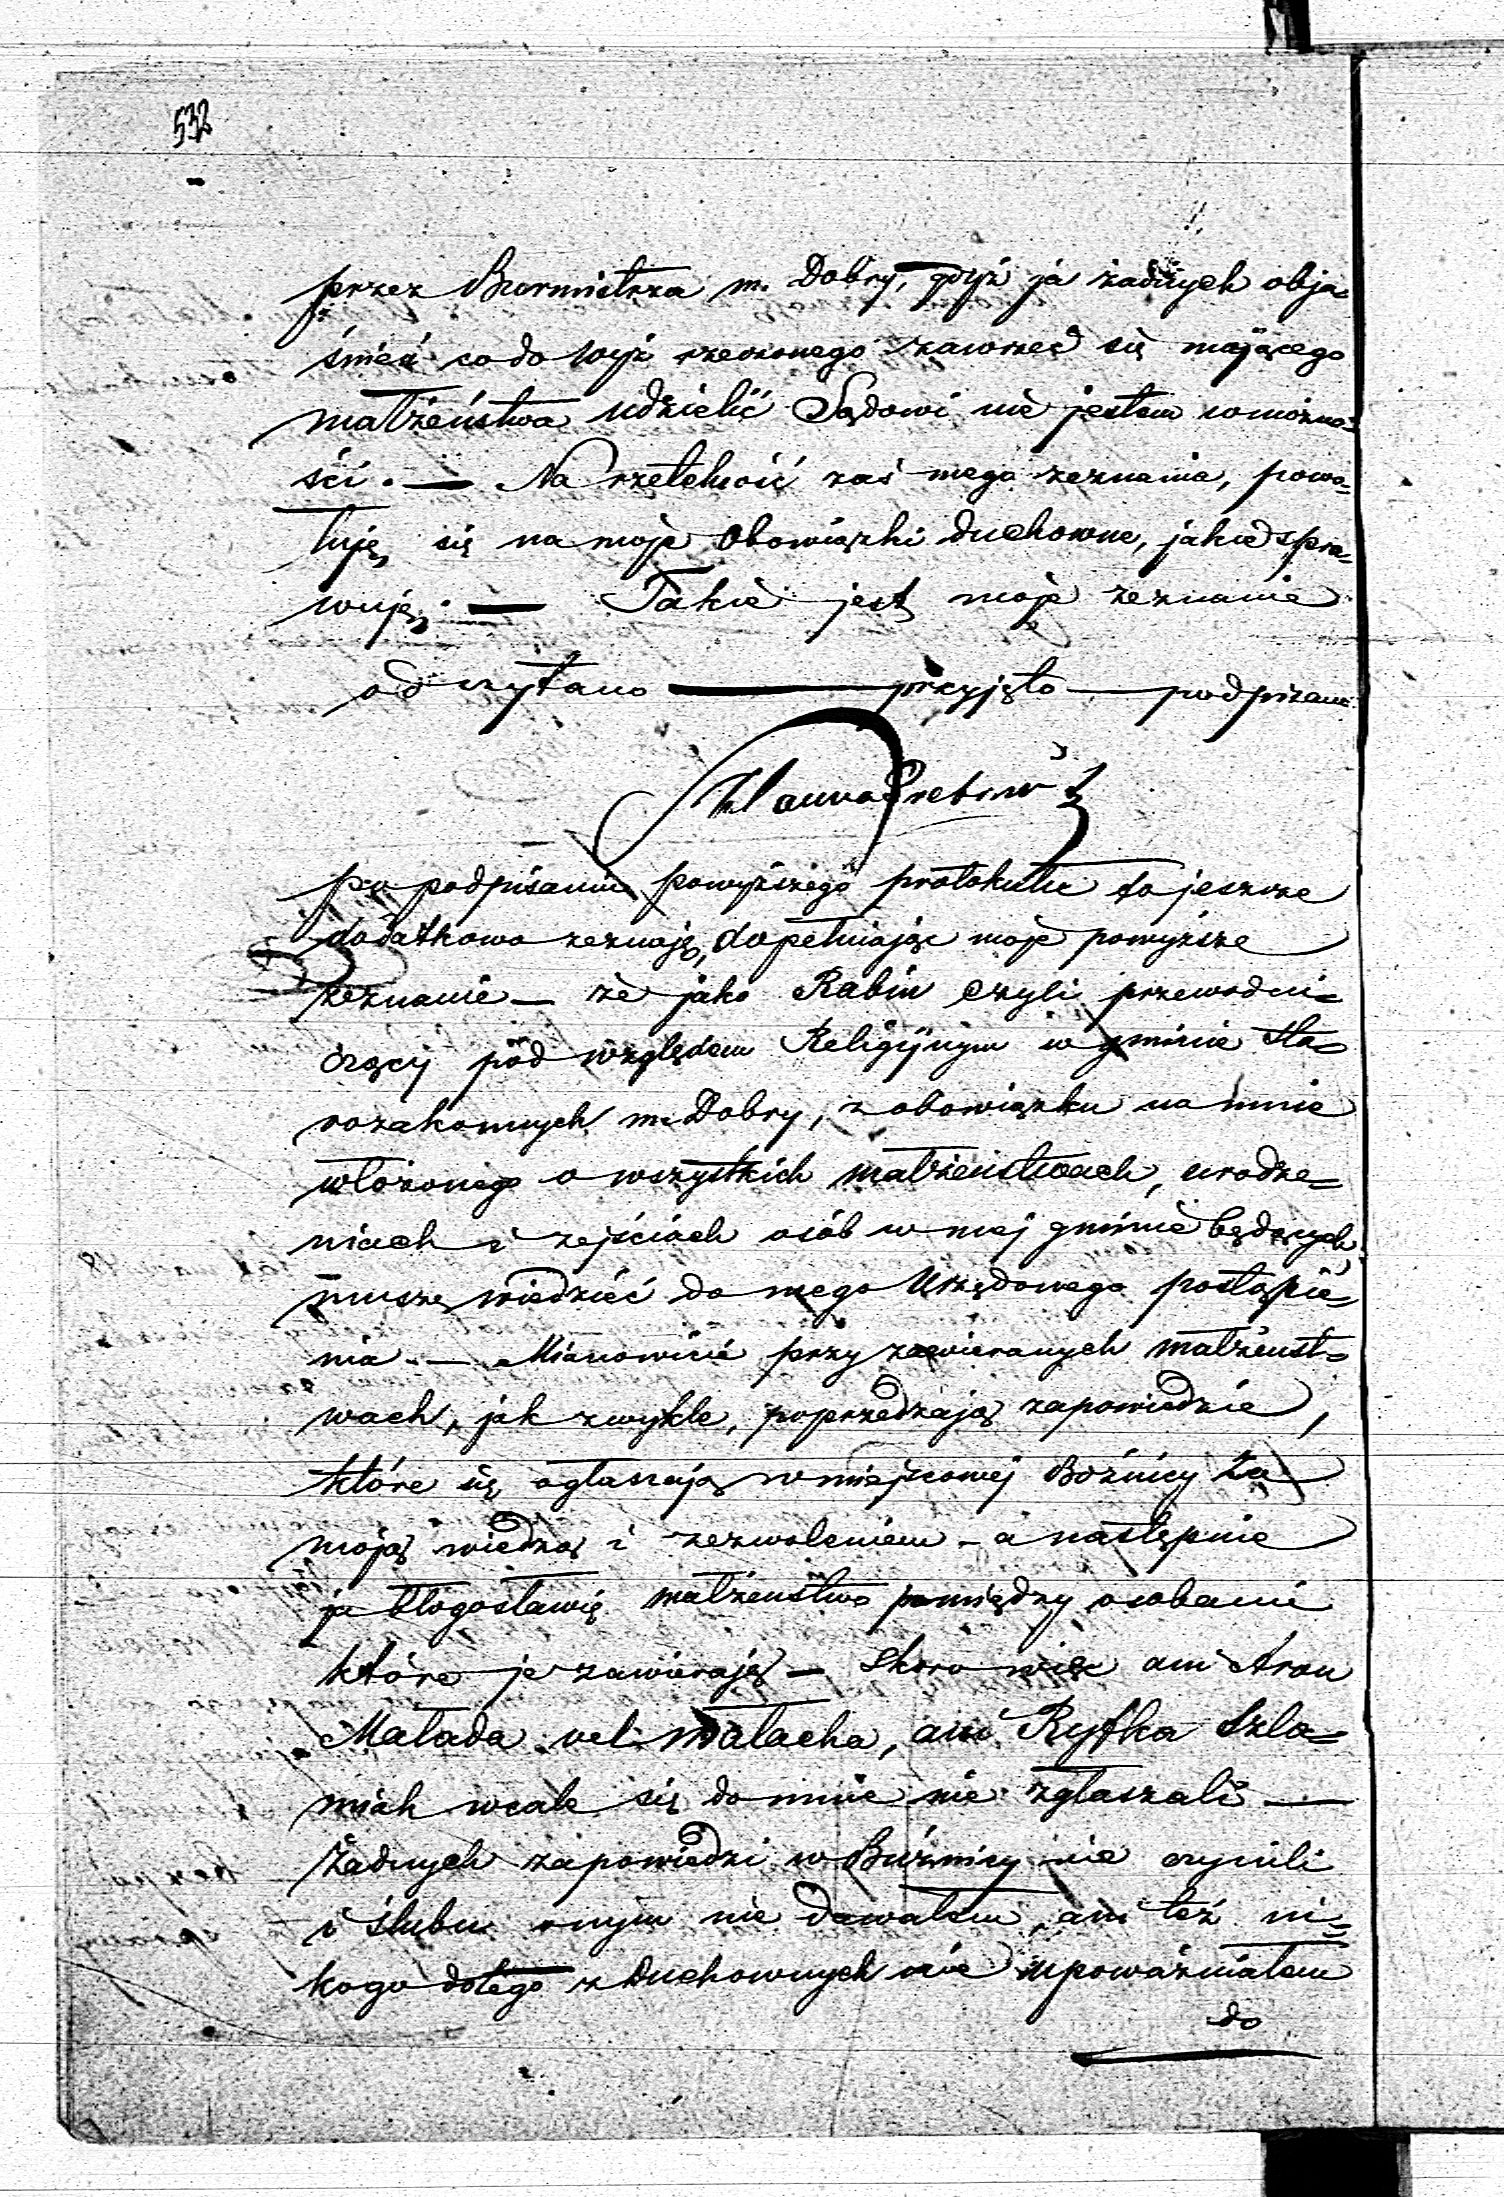 532
przez Burmistrza m. Dobry, gdyż ja żadnych obja
śnień co do wyż rzeczonego zawrzeć się mającego
małżeństwa udzielić Sądowi nie jestem w możno=
ści. — Na rzetelność zaś mego zeznania, powo=
łuję się na moje Obowiązki duchowne, jakie spra=
wuję. — Takie jest moje zeznanie
odczytano — przyjęto — podpisano
po podpisaniu powyższego protokułu to jeszcze
dodatkowo zeznaję, dopełniając moje powyższe
zeznanie — że jako Rabin czyli przewodni=
czący pod względem Religijnym w gminie Sta=
rozakonnych m. Dobry, z obowiązku na mnie
włożonego o wszystkich małżeństwach, urodze=
niach i zejściach osób w mej gminie będących
muszę wiedzieć do mego Urzędowego postąpie=
nia. — Mianowicie przy zawieranych małżeńst=
wach, jak zwykle, poprzedzają zapowiedzie,
które się ogłaszają w miejscowej Bożnicy za
moją wiedzą i zezwoleniem - a następnie
ja błogosławię małżeństwo pomiędzy osobami
które je zawierają — Skoro więc ani Aron
Małada vel Małacha, ani Ryfka Szla=
miak wcale się do mnie nie zgłaszali —
Żadnych zapowiedzi w Bużnicy nie czynili
i ślubu onym nie dawałem, ani też ni=
kogo do tego z Duchownych nie upoważniałem
do